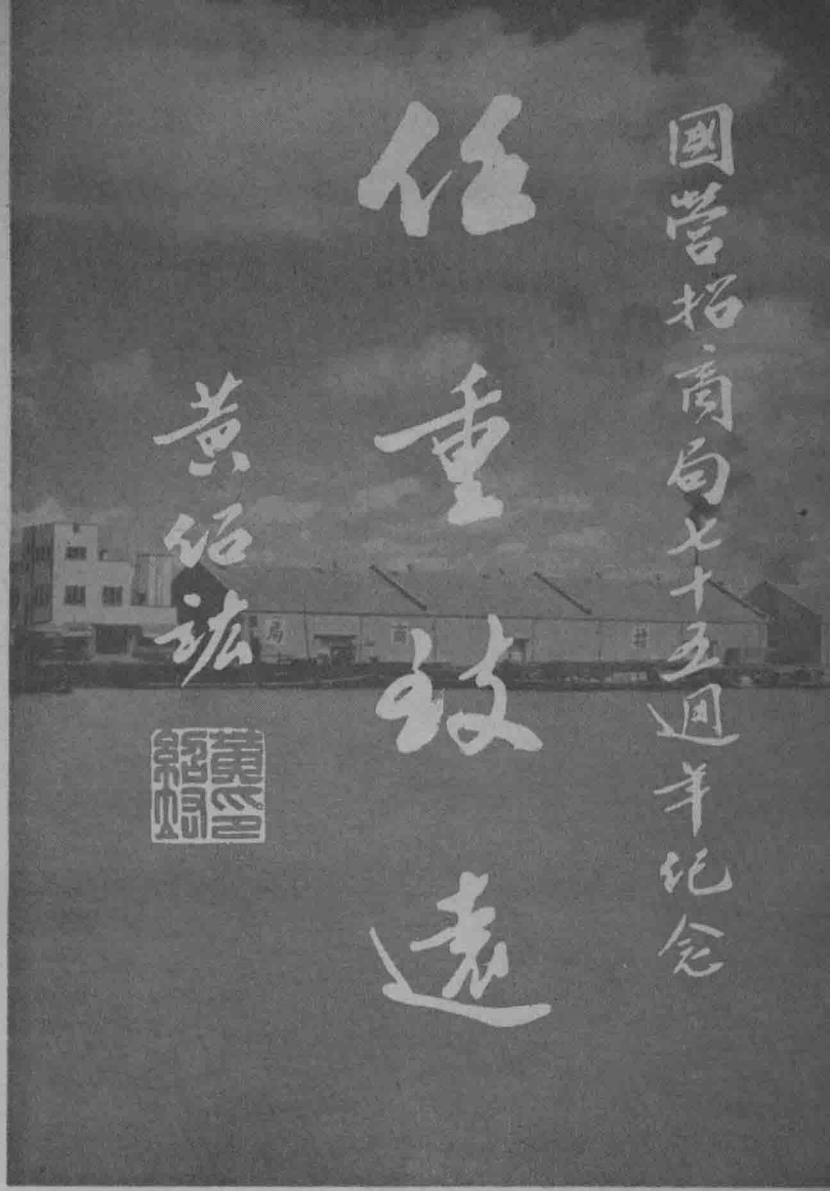 國營招商局七十五週年紀念
任重致遠
黃紹竑
黃印紹竑
招商局